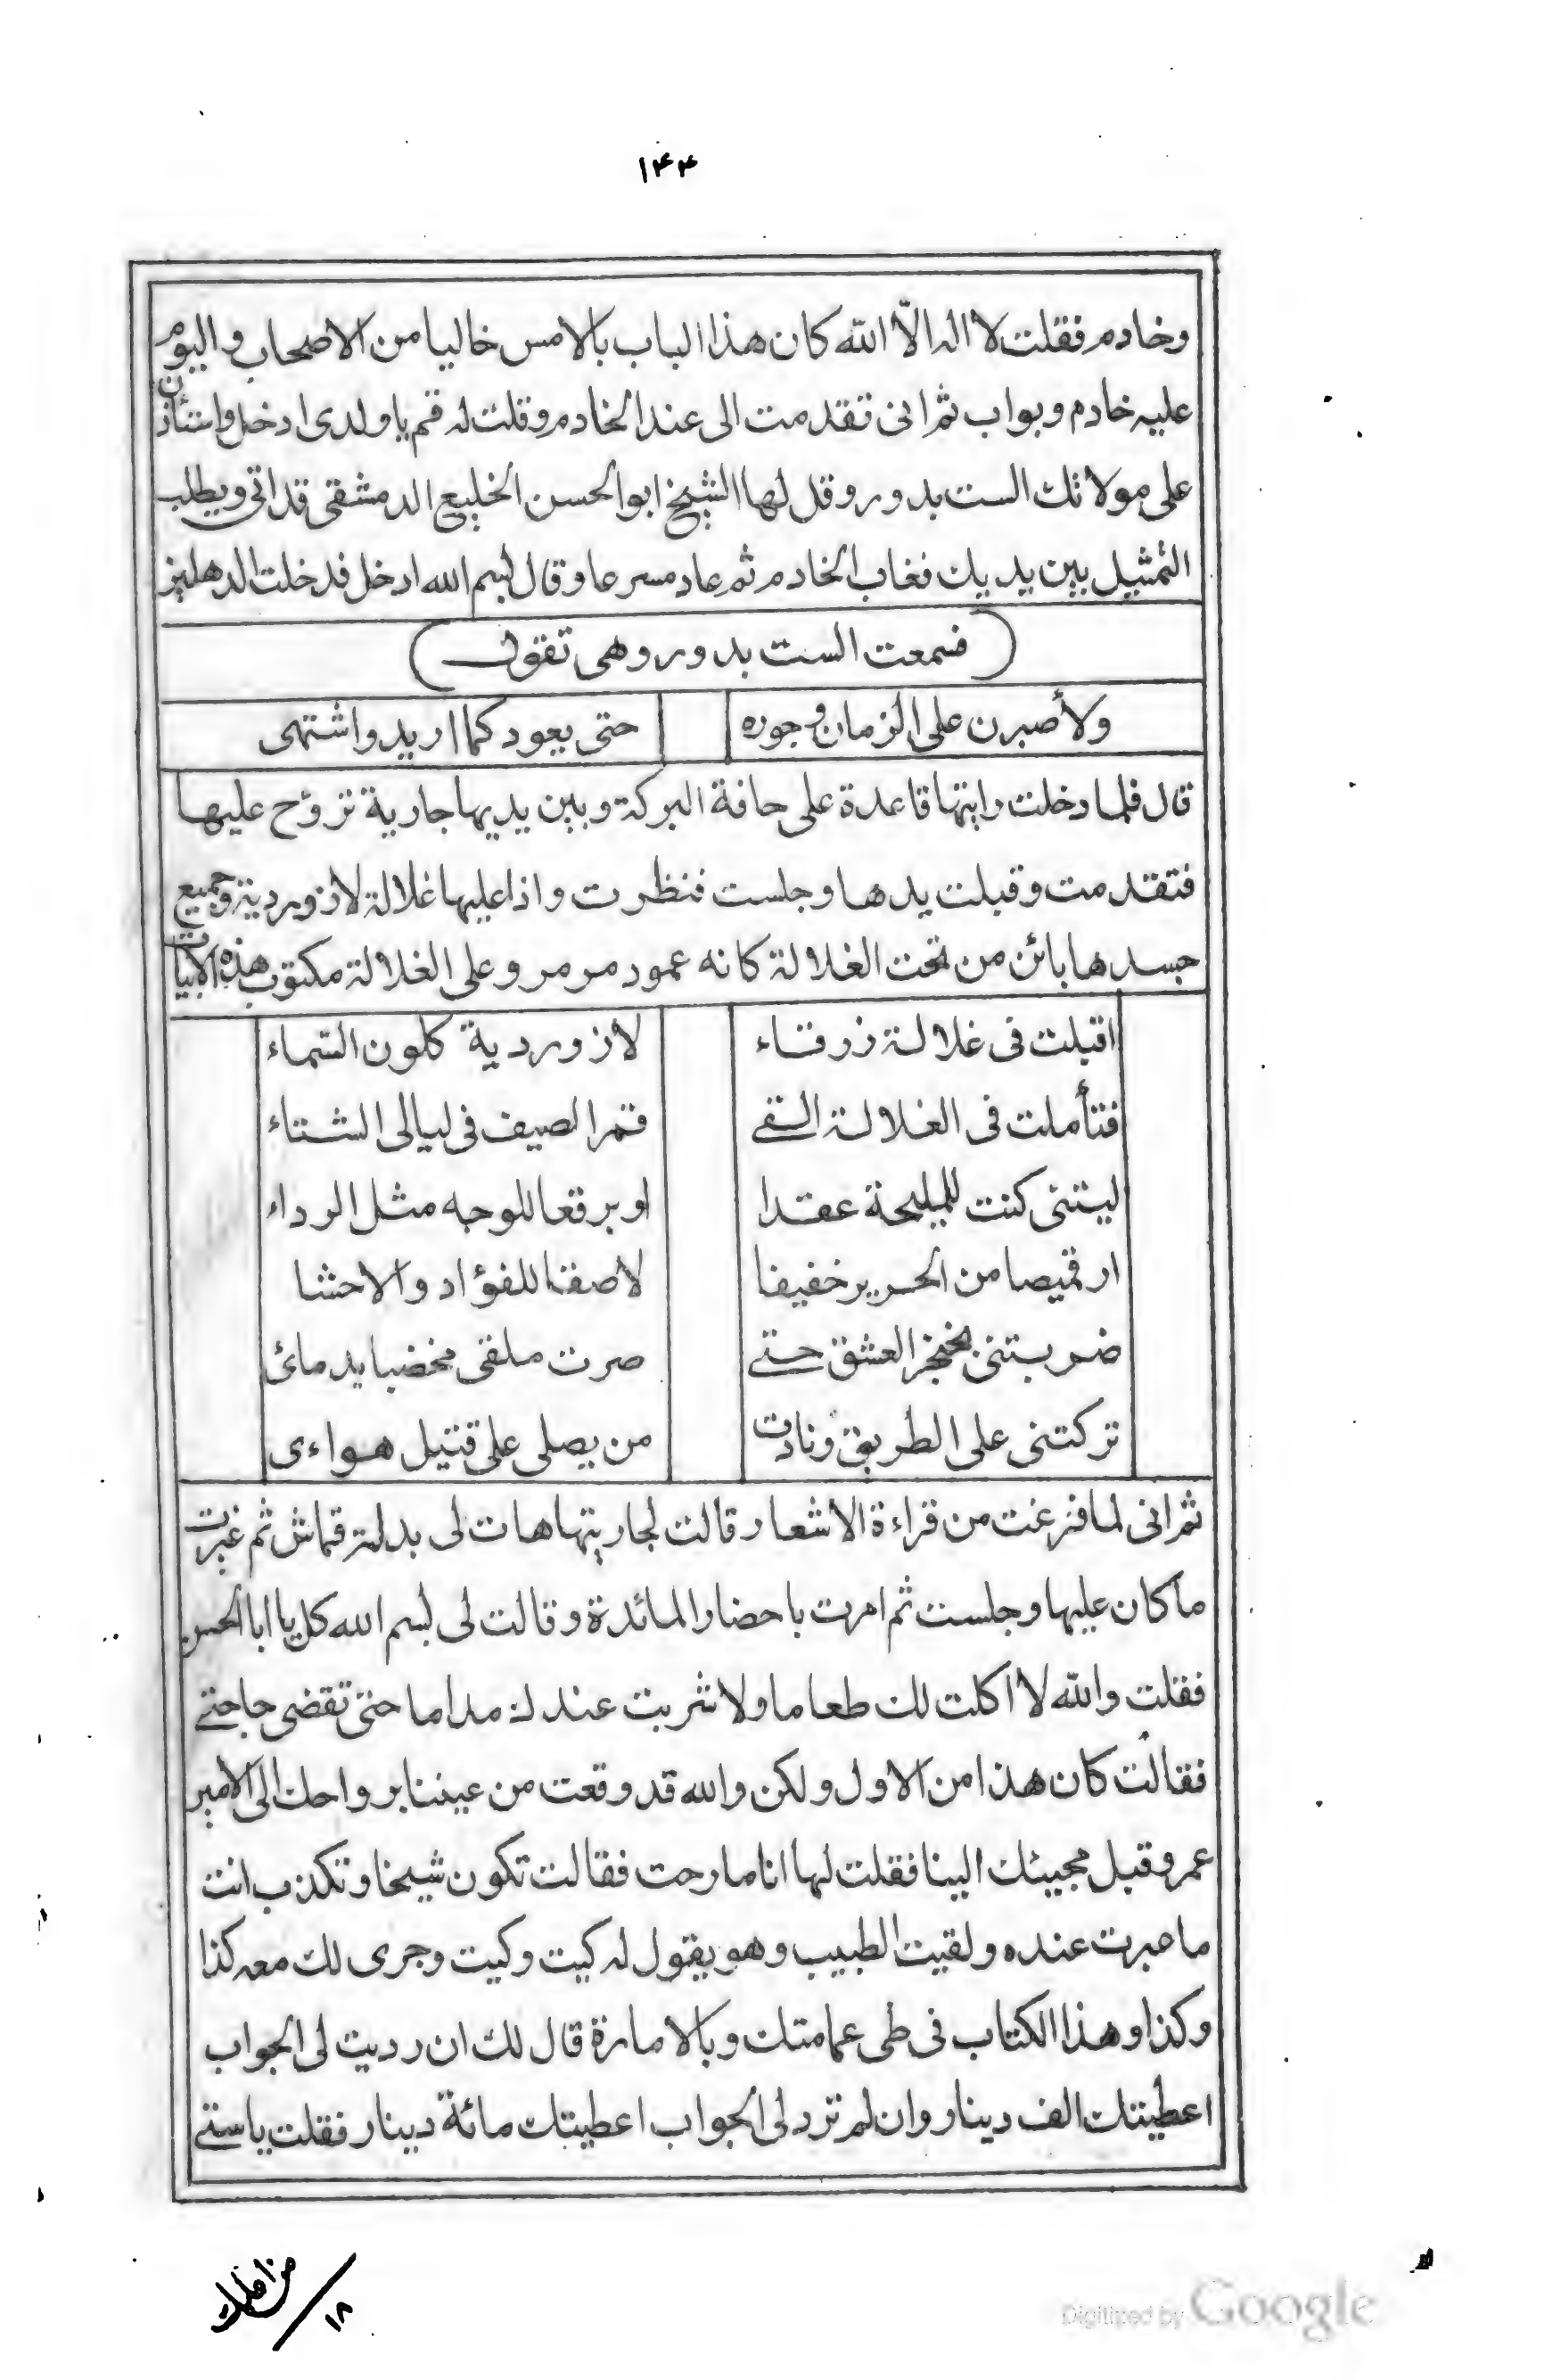 ١٤٤
وخادم فقلت لا اله الّا الله كان هذا الباب بالامس خاليا من الاصحاب واليوم
عليه خادم وبواب ثم انى تقدمت الى عند الخادم وقلت له قم يا ولدى ادخل واستأذن
على مولاتك الست بدور وقل لها الشيخ ابو الحسن الخليع الدمشقى قد اتى ويطلب
التمثيل بين يديك فغاب الخادم ثم عاد مسرعا وقال بسم الله ادخل فدخلت الدهليز
(فسمعت الست بدور وهى تقول)
ولأصبرن على الزمان وجوره حتى يعود كما اريد واشتهى
قال فلما دخلت رايتها قاعدة على حافة البركة وبين يديها جارية تروّح عليها
فتقدمت وقبلت يدها وجلست فنظرت واذا عليها غلالة لازوردية وجميع
جسدها بائن من تحت الغلالة كانه عمود مرمر وعلى الغلالة مكتوب هذه الابيات
اقبلت فى غلالة زرقاء لازوردية كلون السّماء
فتأملت فى الغلالة التقى قمر الصيف فى ليالى الشتاء
ليتنى كنت للمليحة عقدا او برقعا للوجه مثل الرداء
ار قميصا من الحرير خفيفا لاصقا للفؤاد والاحشا
ضربتنى بخنجر العشق حتى صرت ملقى مخضبا بدمائ
تركتنى على الطريق ونادت من يصلى على قتيل هواءى
ثم انى لما فرغت من قراءة الاشعار قالت لجاريتها هات لى بدلة قماش ثم غيرت
ما كان عليها وجلست ثم امرت باحضار المائدة وقالت لى بسم الله كل يا ابا الحسن
فقلت والله لا اكلت لك طعاما ولا شربت عندك مداما حتى تقضى حاجتى
فقالت كان هذا من الاول ولكن والله قد وقعت من عيننا برواحك الى الامير
عمرو قبل مجيئك الينا فقلت لها انا ما رحت فقالت تكون شيخا وتكذب انت
ما عبرت عنده ولقيت الطبيب وهو يقول له كيت وكيت وجرى لك معه كذا
وكذا وهذا الكتاب فى طى عمامتك وبالامارة قال لك ان رديت لى الجواب
اعطيتك الف دينار وان لم ترد لى الجواب اعطيتك مائة دينار فقلت يا ستى
١٨
Digitized by Google